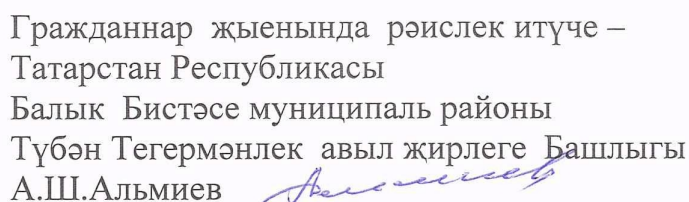 Гражданнар җыенында рәислек итүче –
Татарстан Республикасы
Балык Бистәсе муниципаль районы
Түбән Тегермәнлек авыл җирлеге Башлыгы
А.Ш.Альмиев